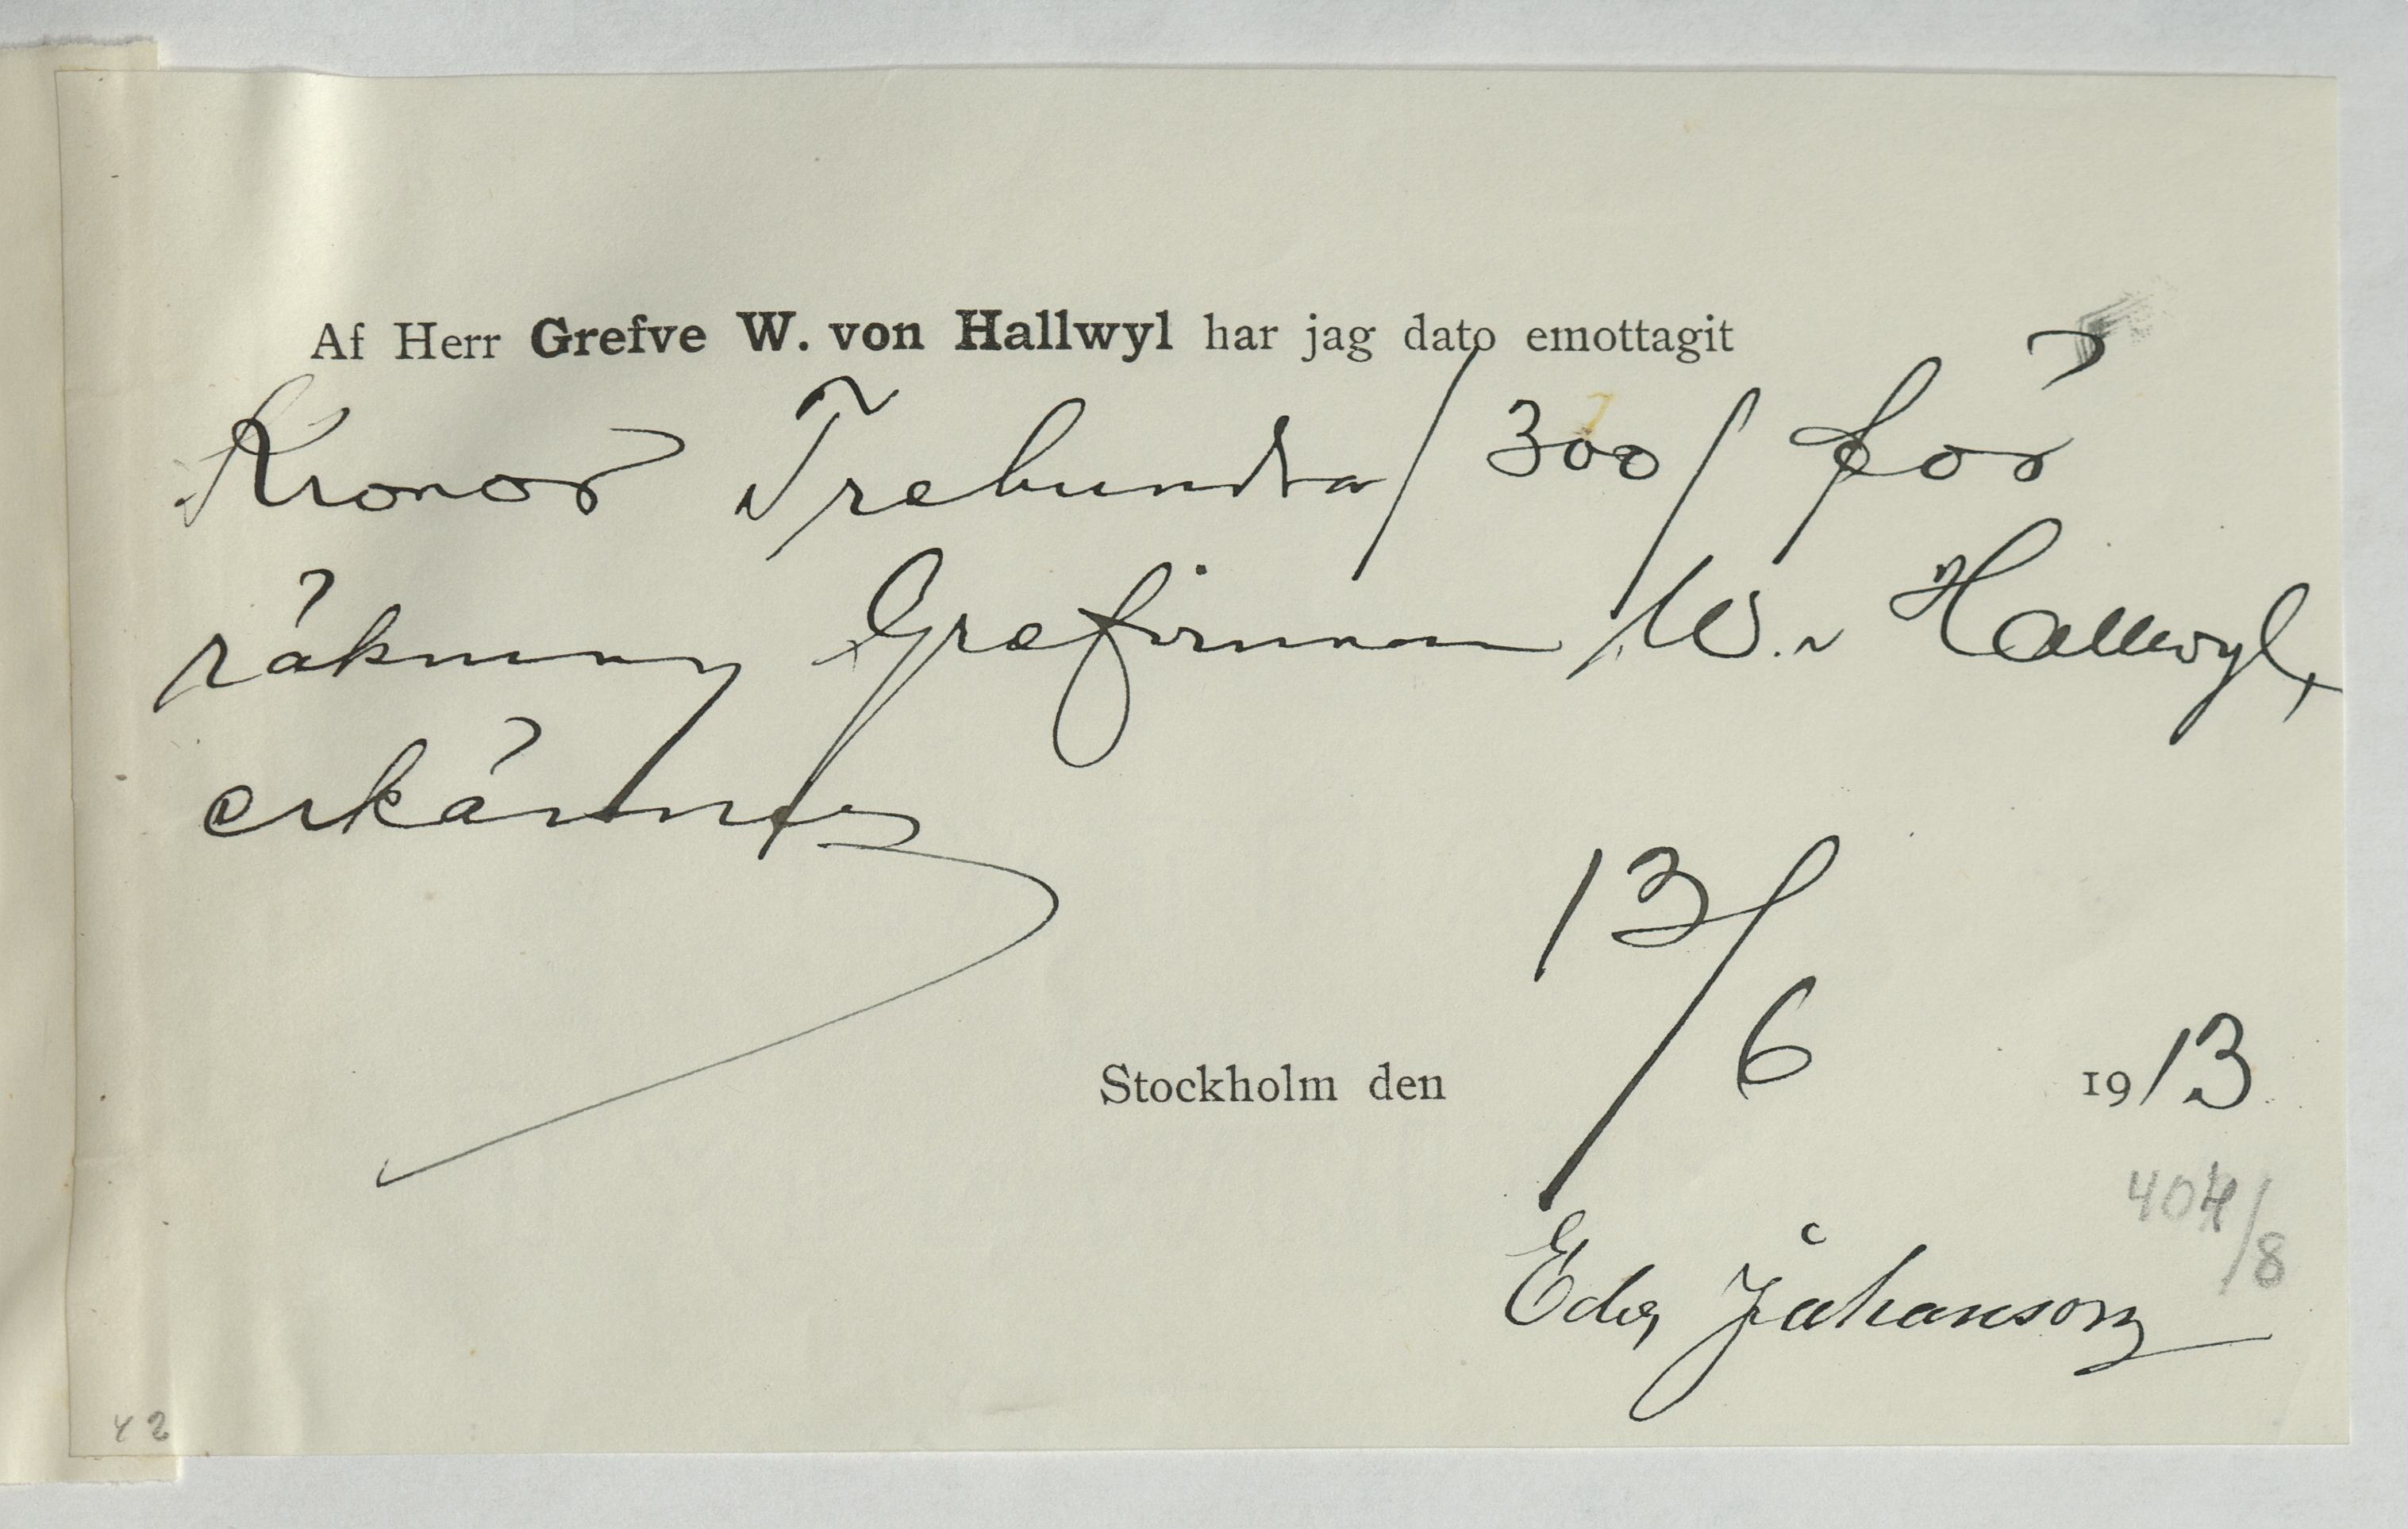 Af Herr Grefve W. von Hallwyl har jag dato emottagit
Kronor Trehundra / 300 / för
räkning Grefvinnan W. v Hallwyl,
erkännes
13/6
Stockholm den 1913
404/8
Edv. Johanson
42